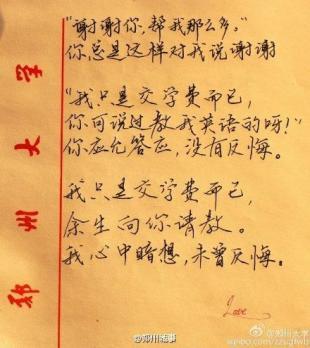 郑州大学
“谢谢你,帮我那么多。”
你总是这样对我说谢谢
“我只是交学费而已,
你可说过教我英语的呀!”
你应允答应,没有反悔。
我只是交学费而已,
余生向你请教。
我心中暗想,未曾反悔。
Love
@郑州大学